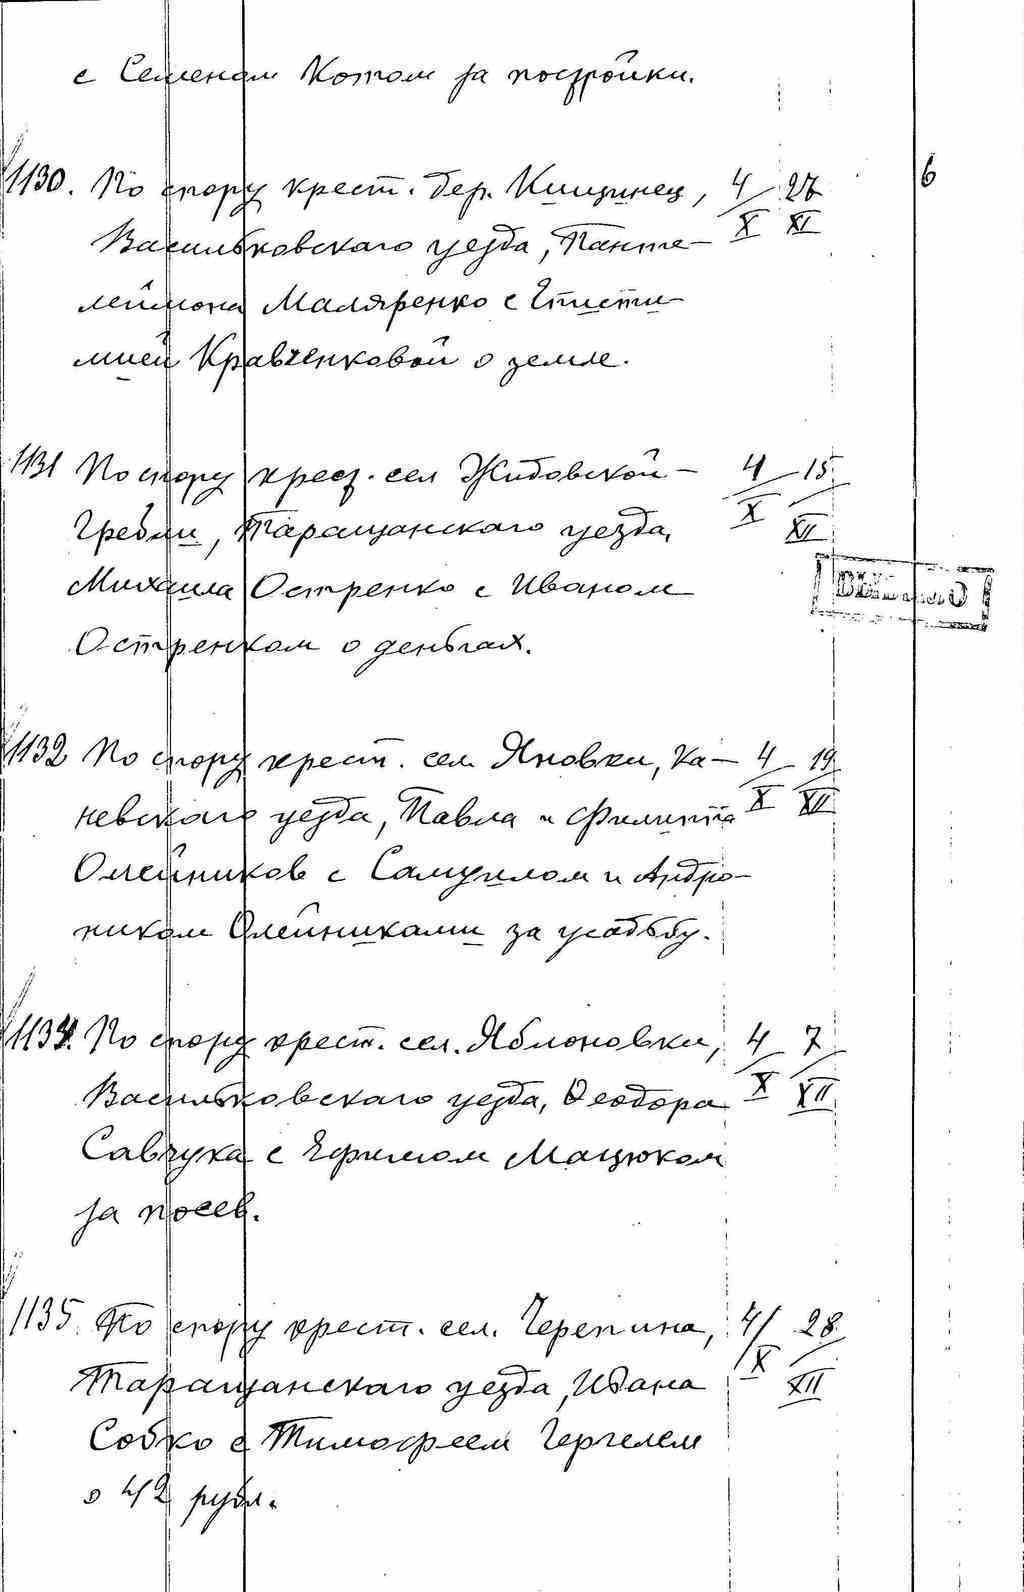 с Семеном Котом за постройки.
1130. По спору крест. дер. Кищинец, 4/X 27/XI 6
Васильковскаго уезда, Панте-
леймона Маляренко с Еписти-
мией Кравченковой о земле.
1131 По спору крест. сел Жидовской- 4/X 15/XII
Гребли, Таращанскаго уезда,
Михаила Остренко с Иваном
Остренком о деньгах.
1132 По спору крест. сел. Яновки, Ка- 4/X 19/XII
невскаго уезда, Павла и Филиппа
Олейников с Самуилом и Андро-
ником Олейниками за усадьбу.
1134. По спору крест. сел. Яблоновки, 4/X 7/XII
Васильковскаго уезда, Феодора
Савчука с Ефимом Мацюком
за посев.
1135. По спору крест. сел. Черепина, 4/X 28/XII
Таращанскаго уезда, Ивана
Собко с Тимофеем Гергелем
о 42 рубл.